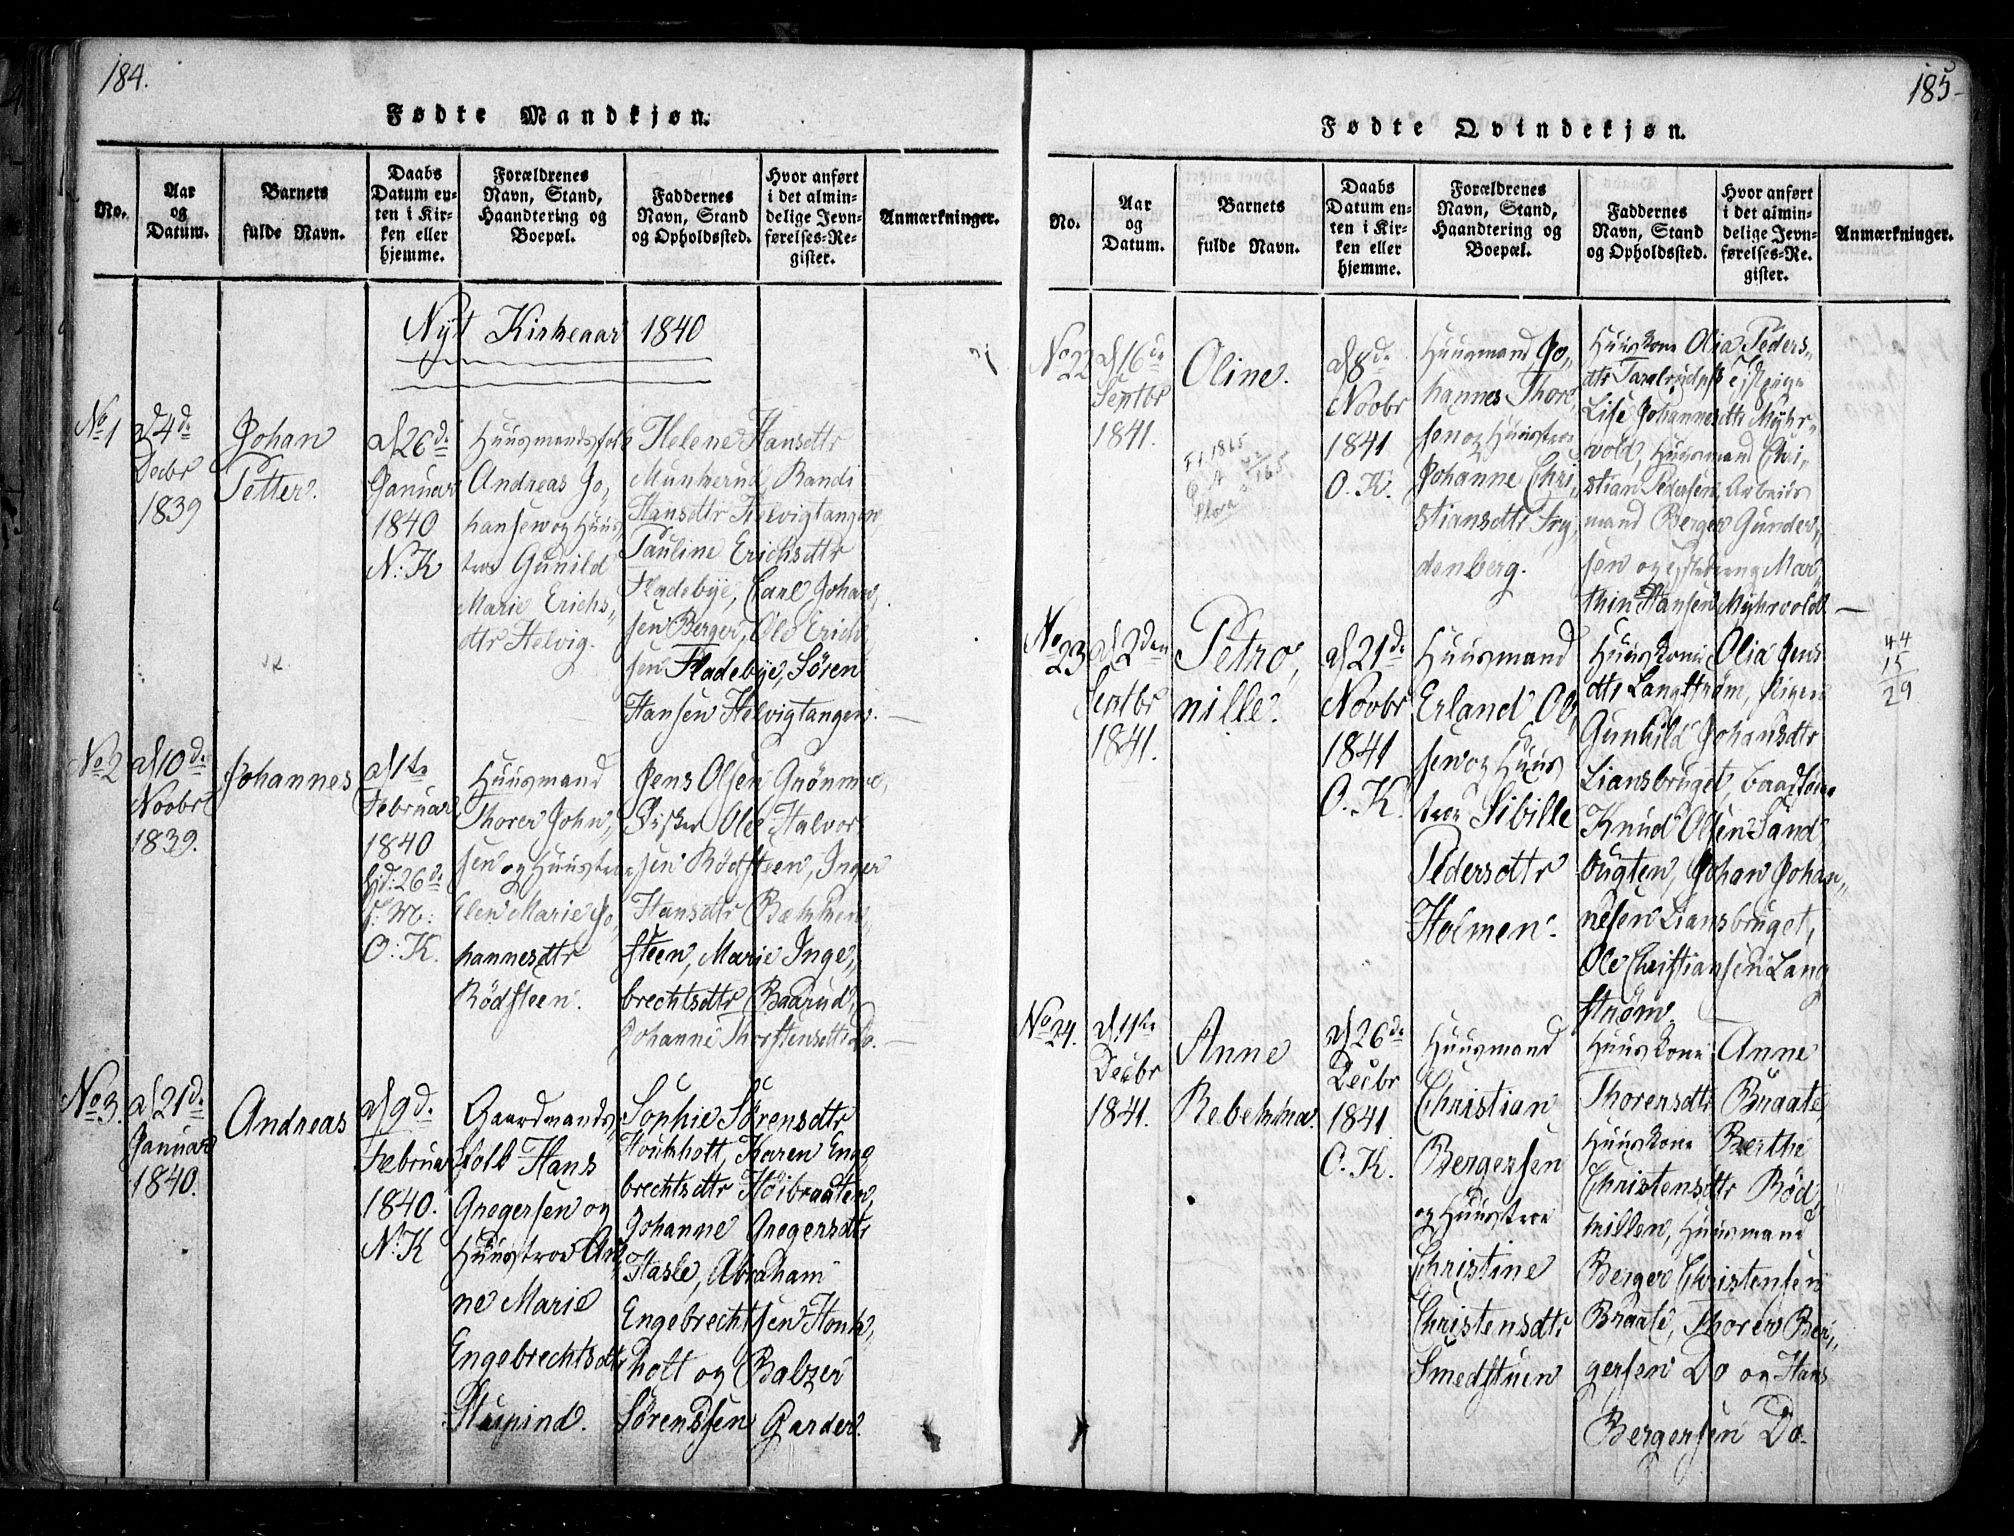 184.
Fødte Mandkjøn.
No.
Aar
og
Datum.
Barnets
fulde Navn.
Daabs
Datum en-
ten i Kir-
ken eller
hjemme.
Forældrenes
Navn, Stand,
Haandtering og
Boepæl.
Faddernes
Navn, Stand
og Opholdssted.
Hvor anført
i det almin-
delige Jevn-
førelses-Re-
gister.
Anmærkninger.
Nyt Kirkeaar 1840
No 1
d 4de
Decbr
1839
Johan
Petter.
d 26de
Januar
1840
N: K
Huusmandsfolk
Andreas Jo,,
hansen og Huus,,
troe Gunild
Marie Erichs,,
dtr Helvig.
Helene Hansdtr
Munkerud, Randi
Hansdtr Helvigtangen,
Pauline Erichsdtr
Fladebye, Carl Johan,,
sen Berger, Ole Erich,,
sen Fladebye, Sören
Hansen Helvigtangen.
No 2
d 10de
Novbr
1839.
Johannes
d 1te
Februar
1840
O: K.
Huusmand
Thorer John,,
sen og Huustroe
Marie Jo,,
hannesdtr
Rödsteen.
Jens Olsen
Ole Halvor
sen Rödsteen, Inger
Hansdtr
steen, Marie Inge,,
brechtsdtr Baarud,
Johanne Thorstensdtr Do.
No 3.
d 21de
Januar
1840.
Andreas
d 9de
Februar
1840.
N: K
Gaardmands,,
folk Hans
Gregersen og
Huustroe An,,
ne Marie
Engebrechtsdtr
Sophie Sörensdtr
Karen Enge,,
brechtsdtr Höibraaten,
Johanne Gregersdtr
Hasle, Abraham
Engebrechtsen Honk,,
holt og Balzer
Sörendsen Garder.
185
Fødte Qvindekjøn.
No.
Aar
og
Datum.
Barnets
fulde Navn.
Daabs
Datum en-
ten i Kir-
ken eller
hjemme.
Forældrenes
Navn, Stand,
Haandtering og
Boepæl.
Faddernes
Navn, Stand
og Opholdssted.
Hvor anført
i det almin-
delige Jevn-
førelses-Re-
gister.
Anmærkninger.
No 22
d 16de
Septbr
1841.
Oline.
d 8de
Novbr
1841
O. K.
Huusmand Jo,,
hannes Thore,,
sen og Huustroe
Johanne Chri,,
stiansdtr Fry,,
denberg.
Huuskone Olia Peders,,
dtr
Lise Johannesdtr Myhr,,
vold, Huusmand Chri,,
stian Pedersen, Arbeids
mand Berger Gunder,,
sen og Mar,,
thin Hansen Myhrvold
No 23
d 2den
Septbr
1841.
Petro,,
nille.
d 21de
Novbr
1841
O. K.
Huusmand
Erland Ol,,
sen og Huus
troe Sibille
Pedersdtr
Holmen.
Huuskone Olia Jens
dtr Langström, Pigen
Gunhild Johansdtr
Liansbruget,
Knud Olsen Sand,,
bugten, Johan Johan,,
nesen Liansbruget,
Ole Christiansen Lang
ström.
44
15
29
No 24.
d 11te
Decbr
1841.
Anne
Rebekka.
d 26de
Decbr
1841
O. K.
Huusmand
Christian
Bergersen
og Huustroe
Christine
Christensdtr
Smedstuen
Huuskone Anne
Thorensdtr Braate,
Huuskone Berthe
Christensdtr Röd,,
millen, Huusmand
Berger Christensen
Braate, Thorer Ber,,
gersen Do og Hans
Bergersen Do.